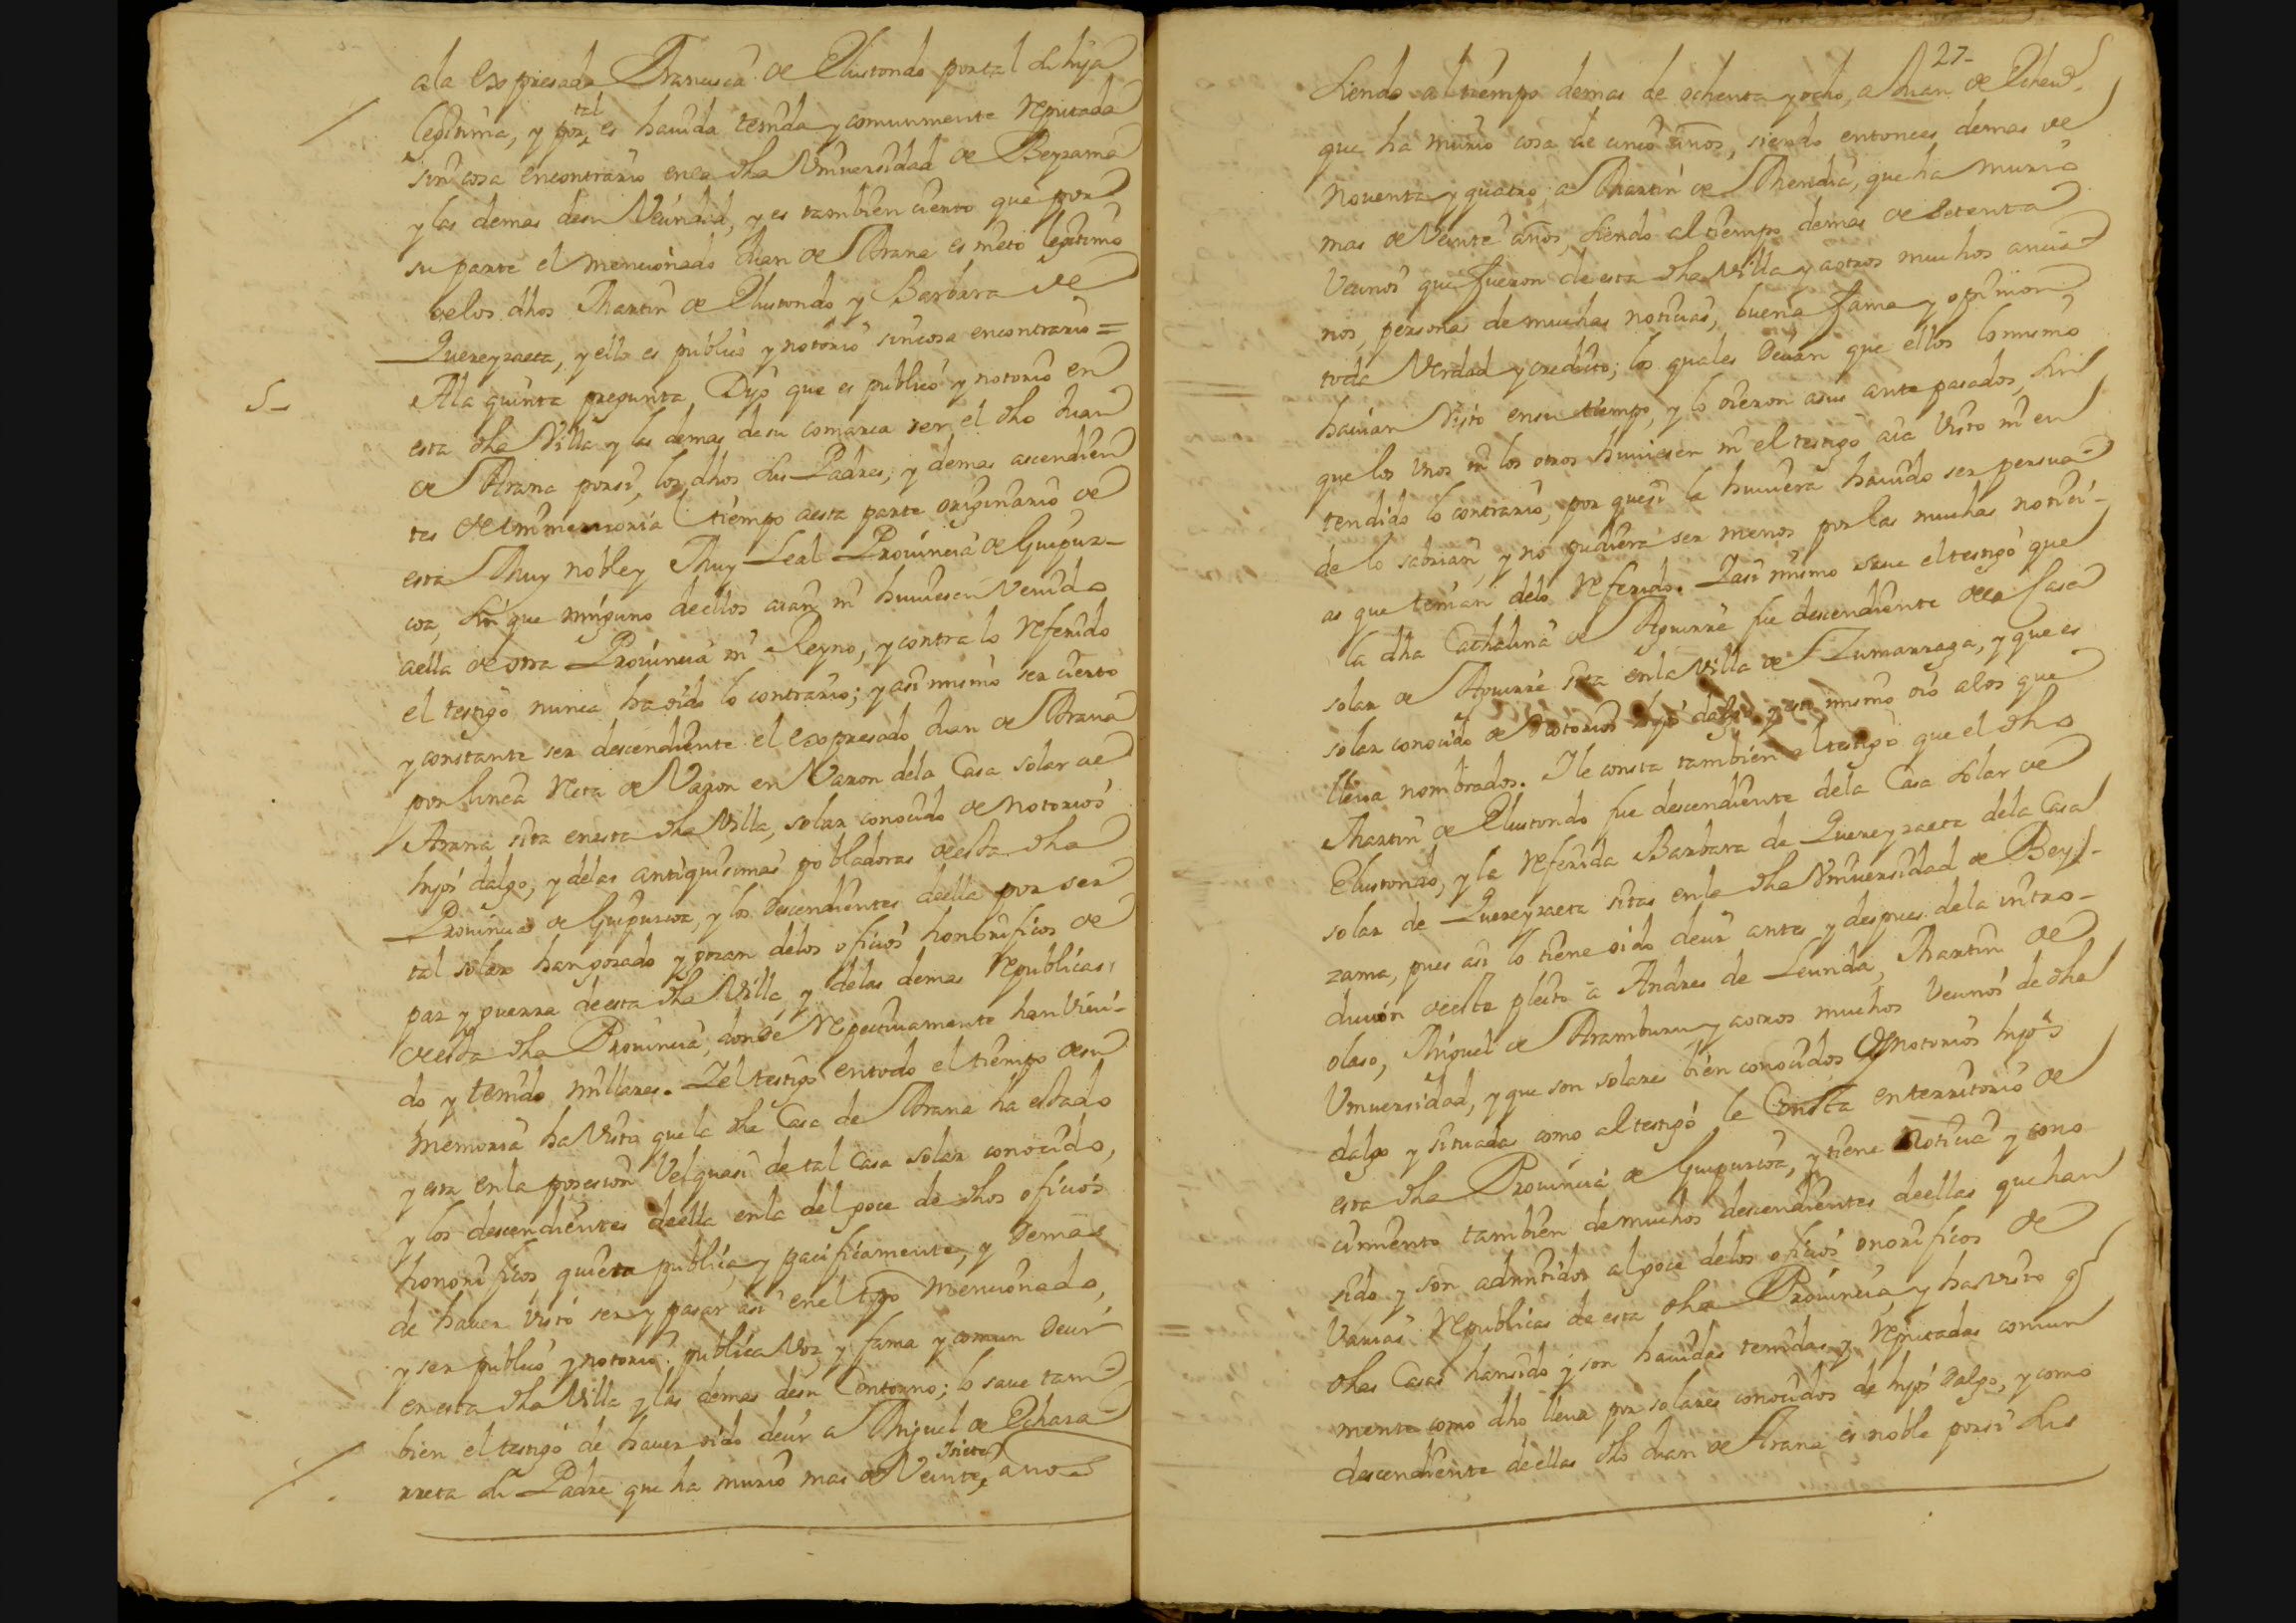 ala Expresada Francisca de Elustondo por tal su hija
legitima, y por tal es hauida tenida y comunmente Reputada
sin cosa encontrario en la dha Vniuersidad de Beyzama
y las demas de su Vecindad, y es tambien cierto que por
su parte el mencionado Juan de Arana es nieto legitimo
de los dhos Martin de Elustondo y Barbara de
Quereyzaeta, y ello es publico y notorio sin cosa encontrario =
5_ Ala quinta pregunta Dijo que es publico y notorio en
esta dha Villa y las demas de su comarca ser el dho Juan
de Arana por si, los dhos sus Padres, y demas ascendien
tes de immemorial tiempo aesta parte originario de
esta Muy noble y Muy Leal Prouincia de Guipuz-
coa, sin que ninguno deellos aian ni huuiesen Venido
aella de otra Prouincia ni Reyno, y contra lo Referido
el testigo nunca ha oido lo contrario; y asi mismo ser cierto
y constante ser descendiente el Expresado Juan de Arana
por linea Reta de Varon en Varon dela Casa solar de
Arana sita en esta dha Villa, solar conocido de notorios
hijos dalgo, y delas antiquisimas pobladoras de esta dha
Prouincia de Guipuzcoa, y los Descendientes deella por ser
tal solar han gozado y gozan delos oficios honorificos de
paz y guerra de esta dha Villa, y delas demas Republicas
de esta dha Prouincia, donde Respectiuamente han Viui-
do y tenido millares. Y el testigo en todo el tiempo de su
memoria ha Visto que la dha Casa de Arana ha estado
y esta en la posesion Vel quasi de tal Casa solar conocido,
y los descendientes deella en la del goce de dhos oficios
honorificos, quieta publica, y pacificamente, y Demas
de hauer visto ser y pasar asi en el tpo mencionado,
y ser publico y notorio. publica Voz, y fama y comun Decir
en esta dha Villa y las demas de su Contorno; lo saue tam
bien el testigo de hauer oido decir a Miguel de Echaza
rreta su Padre que ha murio mas de Veinte y siete años
27_
Siendo al tiempo demas de ochenta y ocho, a Juan de
que ha murio cosa de cinco años, siendo entonces demas de
Nouenta y quatro, a Martin de Mendia, que ha murio
mas de Veinte años, siendo al tiempo demas de Setenta
Vecinos que fueron de esta dha Villa y aotros muchos ancia
nos, personas de muchas noticias, buena fama y opinion,
toda Verdad y credito; los quales Decian que ellos lo mismo
hauian Visto en su tiempo, y lo oieron asus ante pasados, sin
que los Vnos ni los otros huuiesen ni el testigo aia Visto ni en
tendido lo contrario, por que si la huuiera hauido ser persua
de lo sabrian, y no pudiera ser menos por las muchas notici-
as que tenian delo Referido. Y asi mismo saue el testigo que
la dha Cathalina de Aguirre fue descendiente dela Casa
solar de Aguirre sita en la Villa de Zumarraga, y que es
solar conocido de Notorios hijos dalgo, y asi mismo oio alos que
lleua nombrados. Y le consta tambien al testigo que el dho
Martin de Elustondo fue descendiente dela Casa solar de
Elustondo, y la Referida Barbara de Quereyzaeta dela Casa
solar de Quereyzaeta sitas en la dha Vniuersidad de Bey-
zama, pues asi lo tiene oido decir antes y despues dela intro-
ducion deeste pleito a Andres de Leunda, Martin de
olaso, Miguel de Aramburu y aotros muchos Vecinos de dha
Vniuersidad, y que son solares bien conocidos de Notorios hijos
dalgo y situadas como al testigo le Consta en territorio de
esta dha Prouincia de Guipuzcoa, y tiene Noticia y cono
cimiento tambien de muchos descendientes deellas que han
sido y son admitidos al goce delos oficios onorificos de
Varias Republicas de esta dha Prouincia, y ha visto q
dhas Casas han sido y son hauidas tenidas y Reputadas comun
mente como dho lleua por solares conocidos de hijos Dalgo, y como
descendiente deellas dho Juan de Arana es noble por si sus